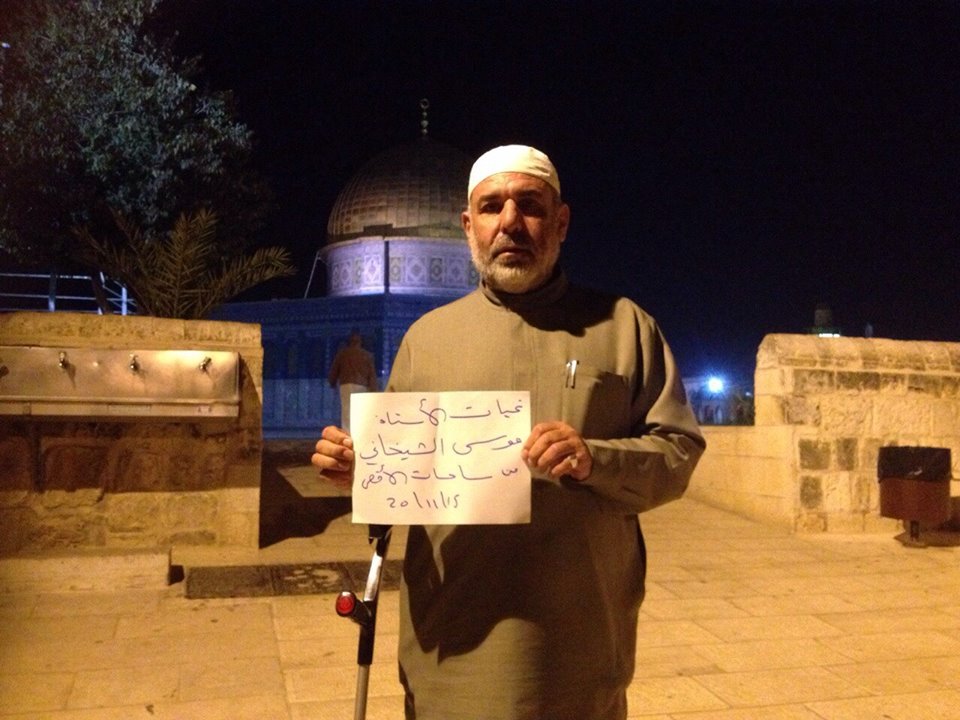 تحيات الأستاذ
موسى الشيخاني
من ساحات الأقصى
20/11/15